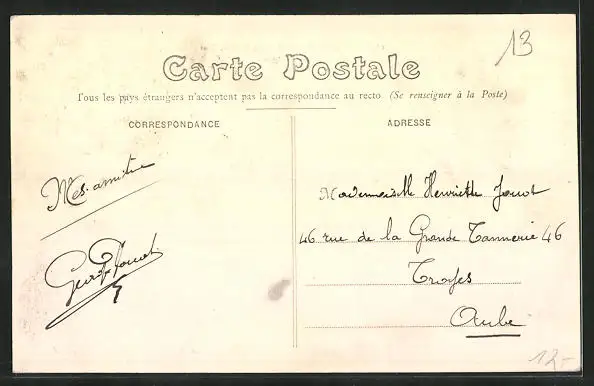 13
Carte Postale
Tous les pays étrangers n'acceptent pas la correspondance au recto (Se renseigner à la Poste)
CORRESPONDANCE
ADRESSE
Mes amitiés
Mademoiselle Henriette Jouot
46 rue de la Grande Tannerie 46
Troyes
Aube
12.-